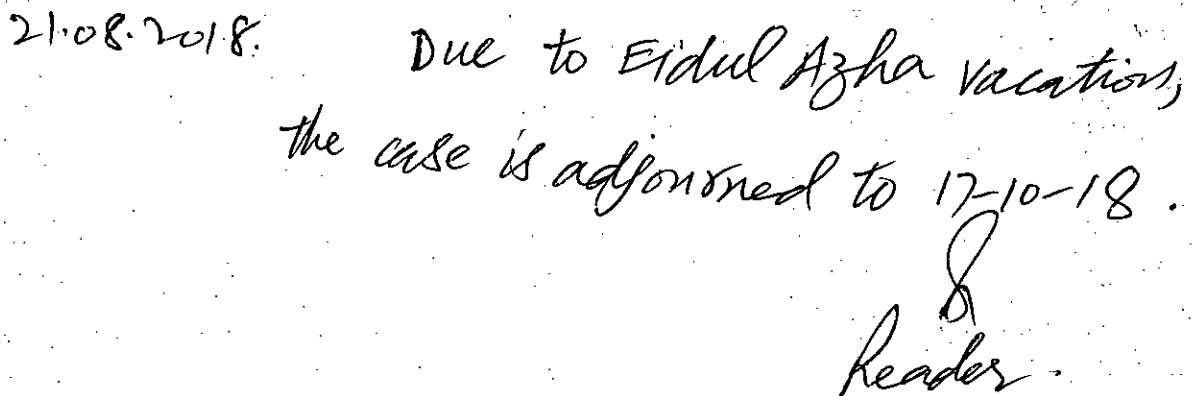 21.08.2018. Due to Eidul Azha vacations,
the case is adjourned to 17-10-18.
Reader.